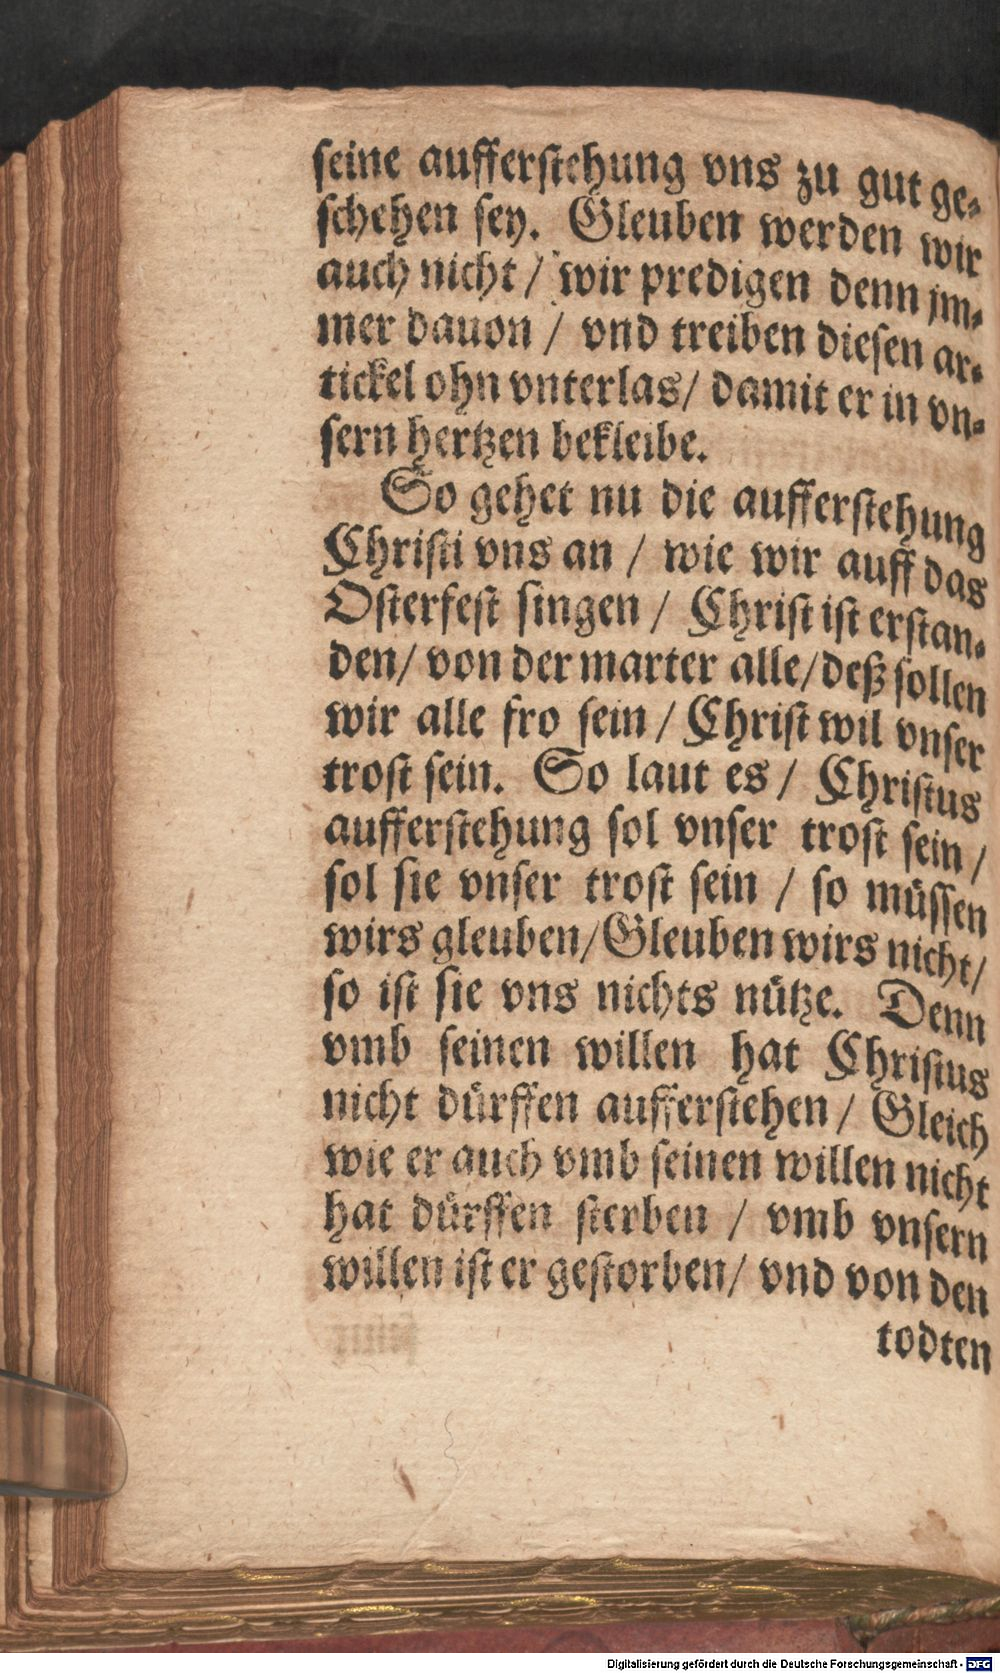 seine aufferstehung vns zu gut ge-
schehen sey. Gleuben werden wir
auch nicht / wir predigen denn jm-
mer dauon / vnd treiben diesen ar-
tickel ohn vnterlas / damit er in vn-
sern hertzen bekleibe.
So gehet nu die aufferstehung
Christi vns an / wie wir auff das
Osterfest singen / Christ ist erstan-
den / von der marter alle / deß sollen
wir alle fro sein / Christ wil vnser
trost sein. So laut es / Christus
aufferstehung sol vnser trost sein /
sol sie vnser trost sein / so müssen
wirs gleuben / Gleuben wirs nicht /
so ist sie vns nichts nütze. Denn
vmb seinen willen hat Christus
nicht dürffen aufferstehen / Gleich
wie er auch vmb seinen willen nicht
hat dürffen sterben / vmb vnsern
willen ist er gestorben / vnd von den
todten
Digitalisierung gefördert durch die Deutsche Forschungsgemeinschaft - DFG